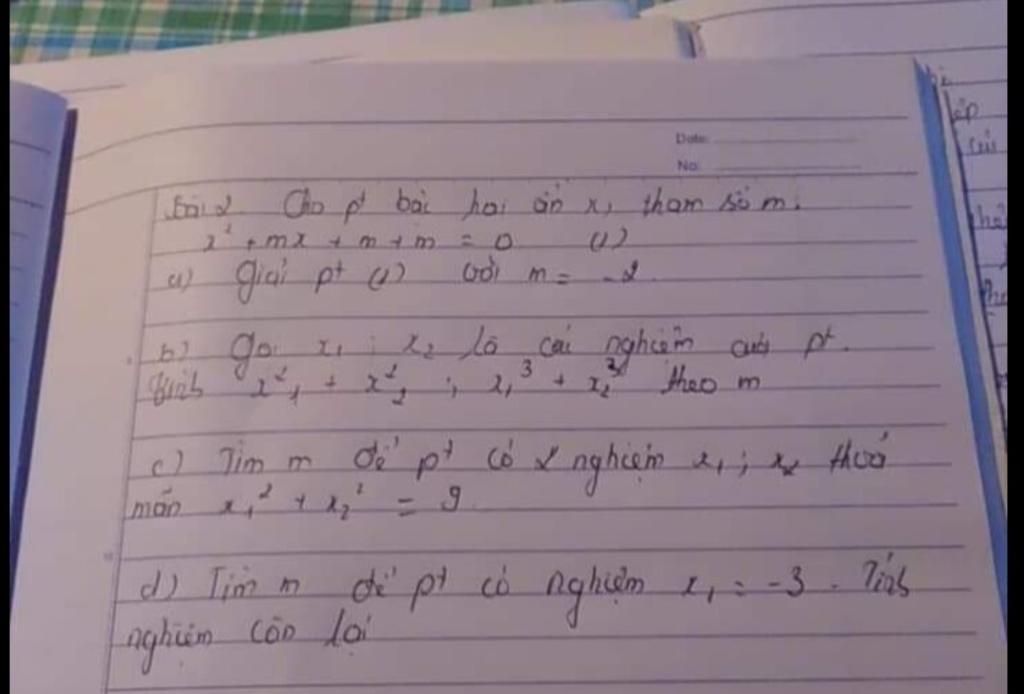 Date:
No:
Bài 2 Cho pt bài hai ẩn x, tham số m.
x² + mx + m + m = 0 (1)
a) Giải pt (1) với m = -2
b) Gọi x₁ ; x₂ là cái nghiệm của pt.
tính x²₁ + x²₂ ; x₁³ + x₂³ theo m
c) Tìm m để pt có 2 nghiệm x₁ ; x₂ thoả
mãn x₁² + x₂² = 9
d) Tìm m để pt có nghiệm x₁ = -3. Tính
nghiệm còn lại